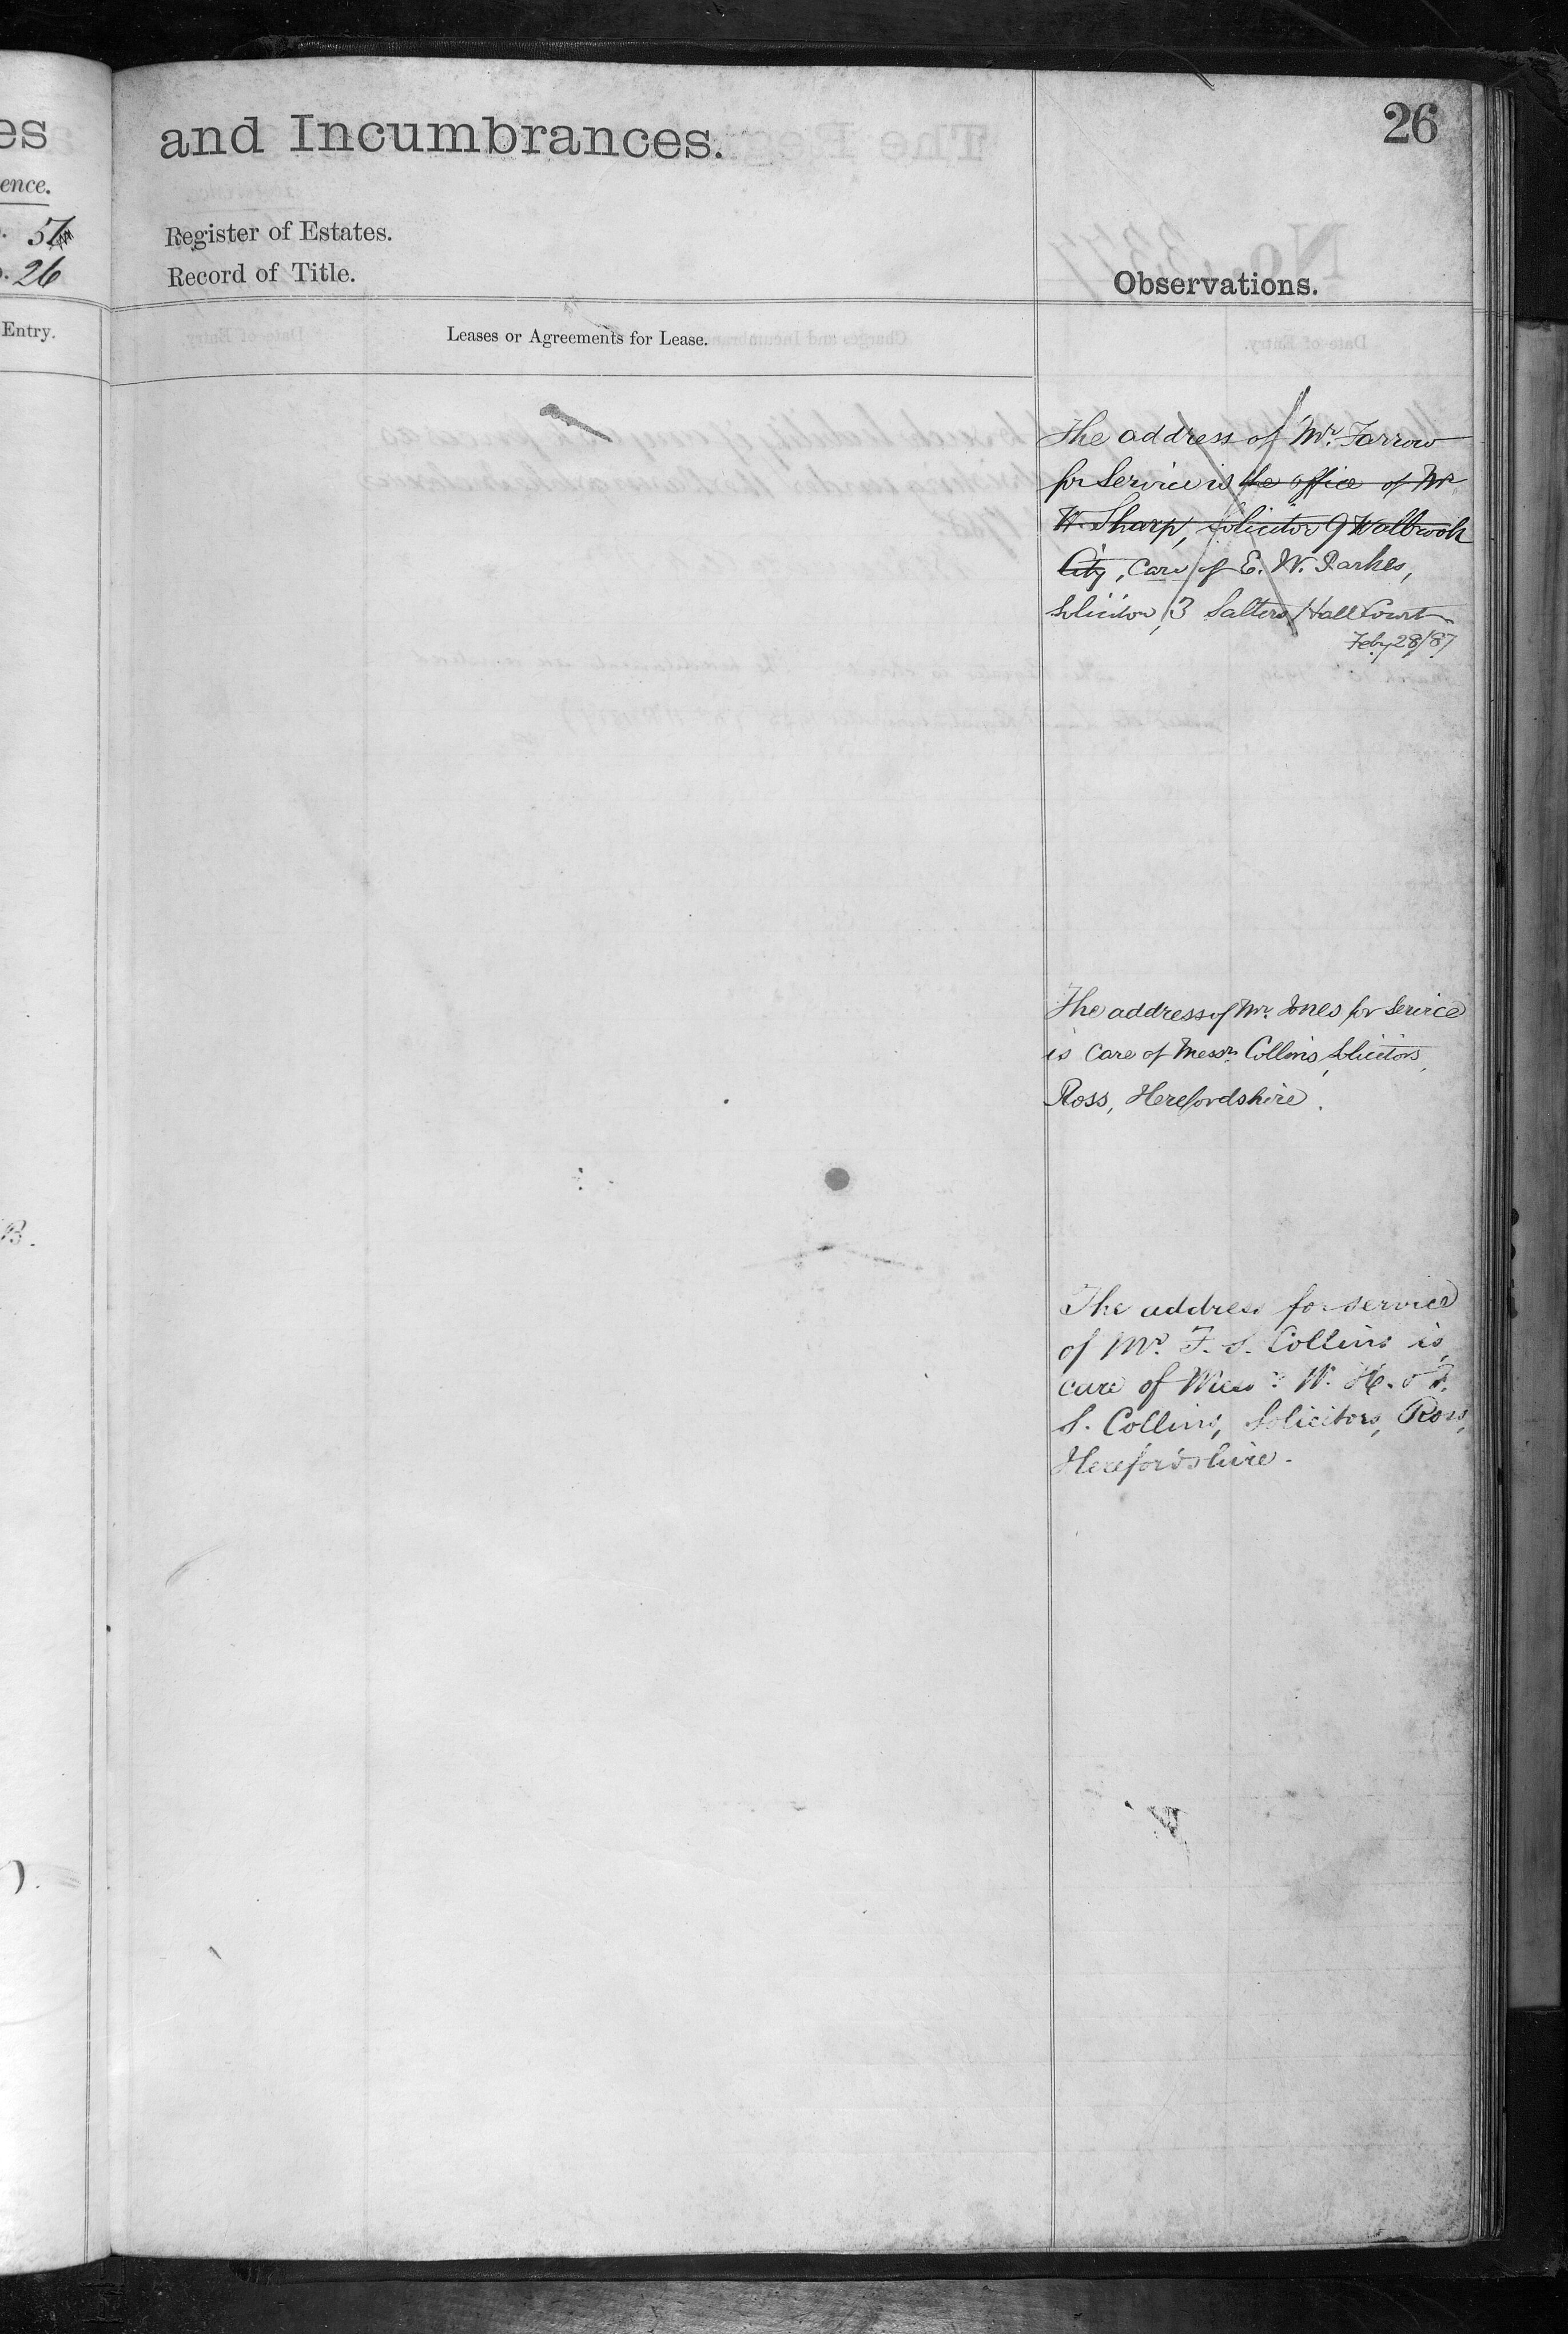 es
and Incumbrances.
26
ence.
Register of Estates.
Record of Title.
26
Observations.
Entry.
Leases or Agreements for Lease.
The address of Mr. Farrow
for Service is the office of Mr
W. Sharp, Solicitor 9 Walbrook
City, care of E. W. Parkes,
Solicitor, 3 Salters Hall Court
Feby 28/87
The address of Mr. Jones for Service
is care of Messrs Collins, Solicitors,
Ross, Herefordshire.
B.
The address for service
of Mr. F. S. Collins is,
care of Messrs W. H. & F.
S. Collins, Solicitors, Ross,
Herefordshire.